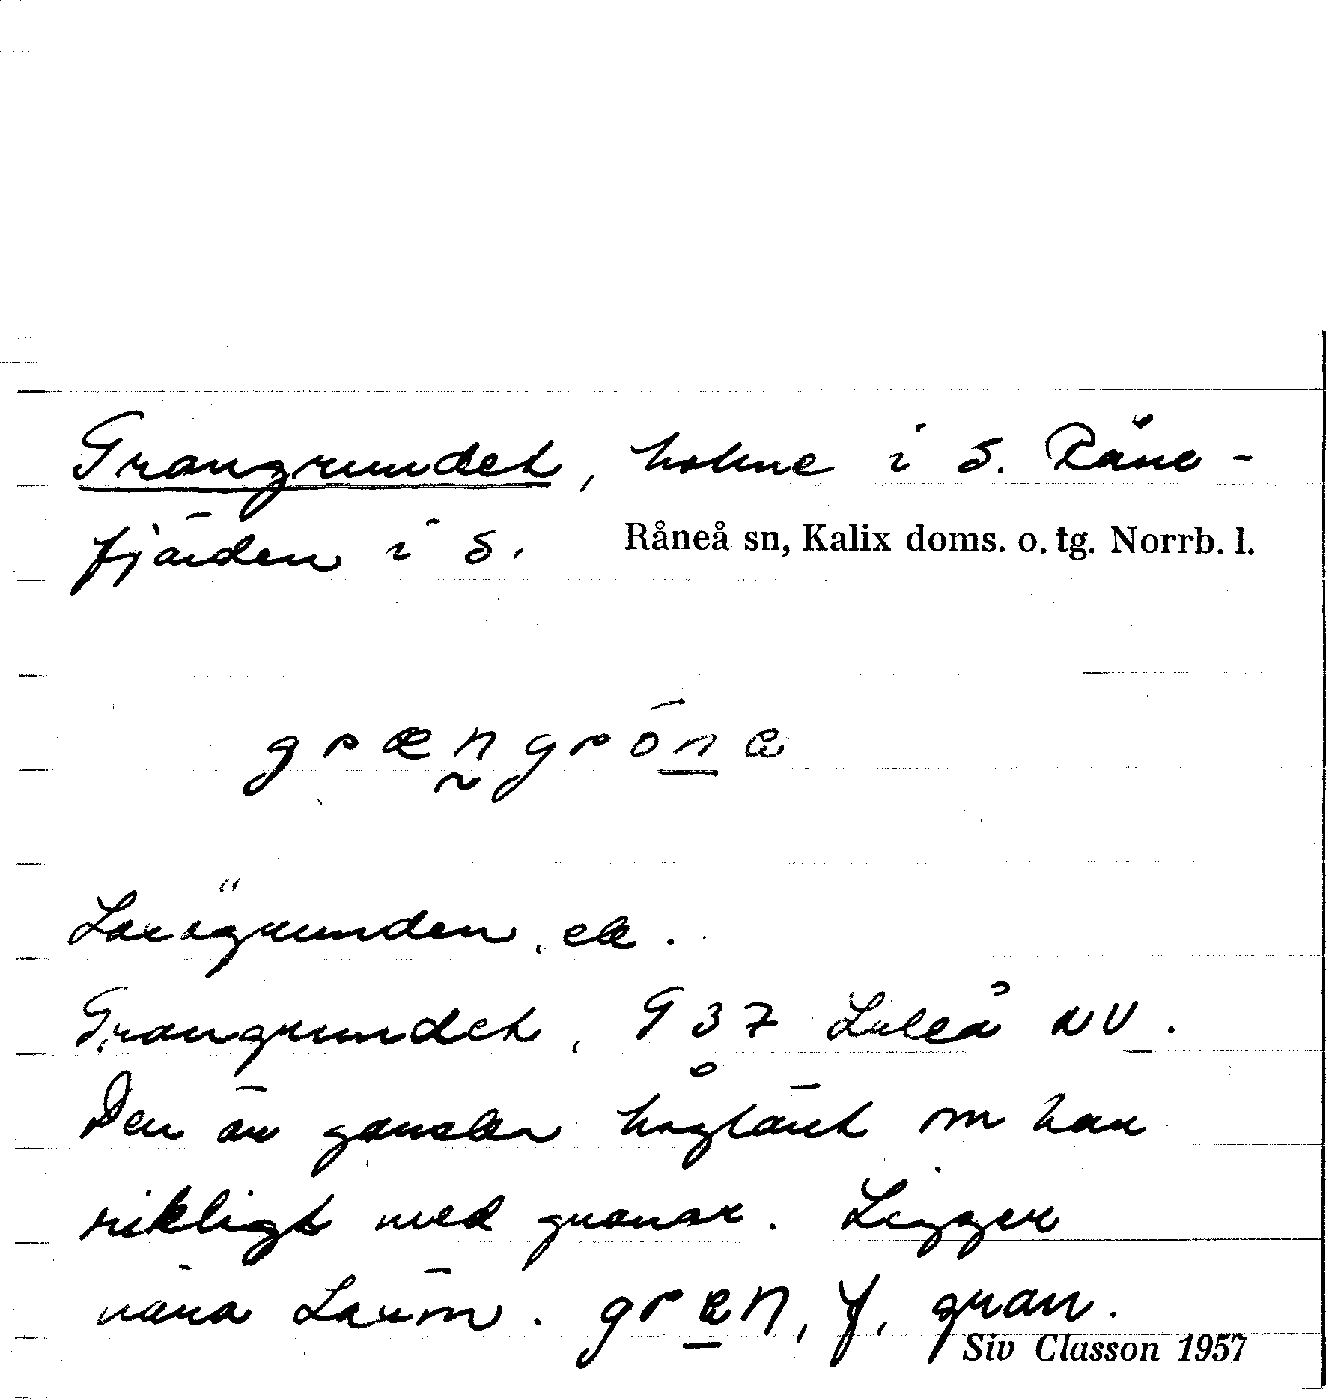 Grangrundet, holme i S. Råne-
fjärden i S. Råneå sn, Kalix doms. o. tg. Norrb. l.
grængróna
Laxögrunden, ek.
Grangrundet, G 37 Luleå NV.
Den är ganska höglänt m har
rikligt med granar. Ligger
nära Laxön. græn, f, gran.
Siv Classon 1957